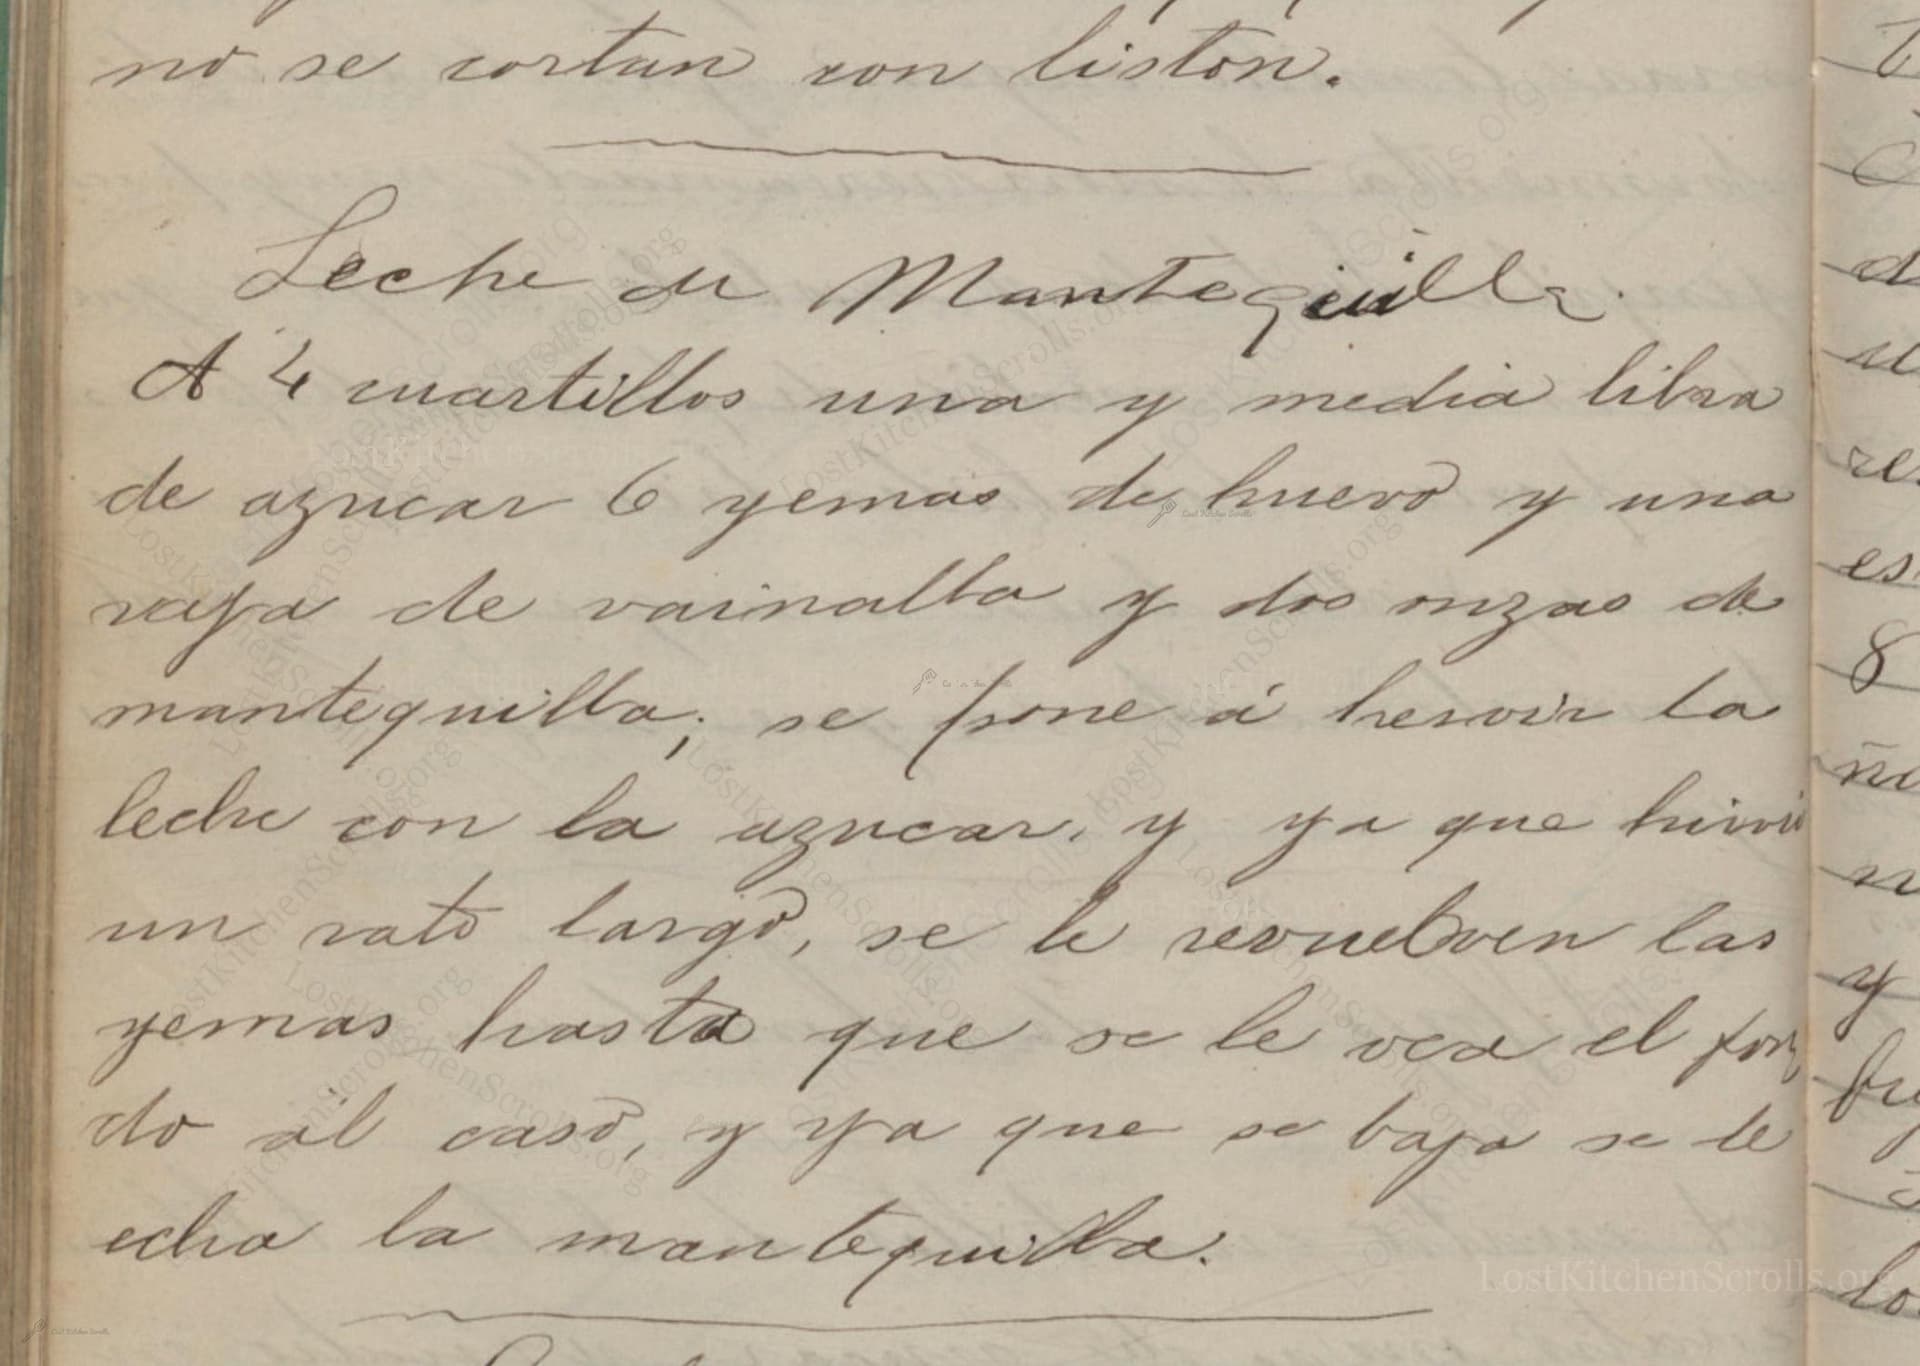 no se cortan con liston.
Leche de Mantequilla.
A 4 cuartillos una y media libra
de azucar 6 yemas de huevo y una
raja de vainalla y dos onzas de
mantequilla; se pone á hervir la
leche con la azucar, y ya que hirvió
un rato largo, se le revuelven las
yemas hasta que se le vea el fon
do al caso, y ya que se baja se le
echa la mantequilla.
LostKitchenScrolls.org